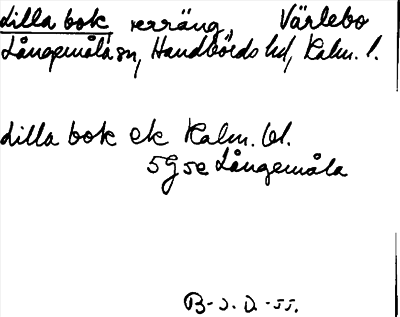 Lilla bok terräng, Värlebo
Långemåla sn, Handbörds hd, Kalm. l.
Lilla bok ek Kalm. bl.
5G5e Långemåla
B-J. D. -55.